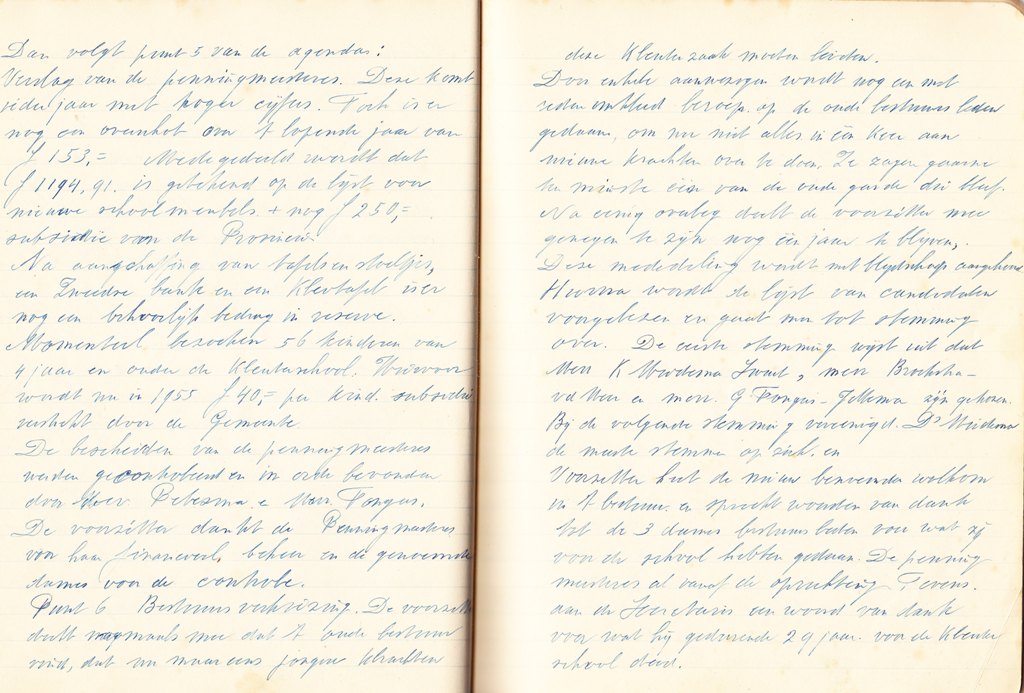 Dan volgt punt 5 van de agenda:
Verslag van de penningmeesteres. Deze komt
ieder jaar met hoger cijfers. Toch is er
nog een overschot over 't lopende jaar van
f 153,= Medegedeeld wordt dat
f 1194,91. is getekend op de lijst voor
nieuwe schoolmeubels. + nog f 250,=
subsidie van de Provincie.
Na aanschaffing van tafels en stoeltjes,
een Zweedse bank en een kleitafel is er
nog een behoorlijk bedrag in reserve.
Momenteel bezoeken 56 kinderen van
4 jaar en ouder de Kleuterschool. Hiervoor
wordt nu in 1955 f 40,= per kind subsidie
verstrekt door de Gemeente.
De bescheiden van de penningmeesteres
werden gecontroleerd en in orde bevonden
door Mevr. Pelesma e Mevr. Fongas.
De voorzitter dankt de Penningmeesteres
voor haar financieel beheer en de genoemde
dames voor de controle.
Punt 6 Bestuursverkiezing. De voorzitter
deelt nogmaals mee dat 't oude bestuur
vind, dat nu maar eens jongere krachten
deze Kleuterzaak moeten leiden.
Door enkele aanwezigen wordt nog een met
reden omkleed beroep op de oude bestuursleden
gedaan, om nu niet alles in één keer aan
nieuwe krachten over te doen. Ze zagen gaarne
ten minste één van de oude garde die bleef.
Na enig overleg deelt de voorzitter mee
genegen te zijn nog één jaar te blijven.
Deze mededeling wordt met blijdschap aangehoord
Hierna wordt de lijst van candidaten
voorgelezen en gaat men tot stemming
over. De eerste stemming wijst uit dat
Mevr K Wiedema Swart, mevr Broekstra-
vd Meer en mevr. G Fongas-Jellema zijn gekozen.
Bij de volgende stemming verenigd Ds Wiedema
de meeste stemmen op zich. en
Voorzitter heet de nieuw benoemden welkom
in 't bestuur en spreekt woorden van dank
tot de 3 dames bestuursleden voor wat zij
voor de school hebben gedaan. De penning
meesteres al vanaf de oprichting. Tevens
aan de Secretaris een woord van dank
voor wat hij gedurende 29 jaar voor de Kleuter
school deed.